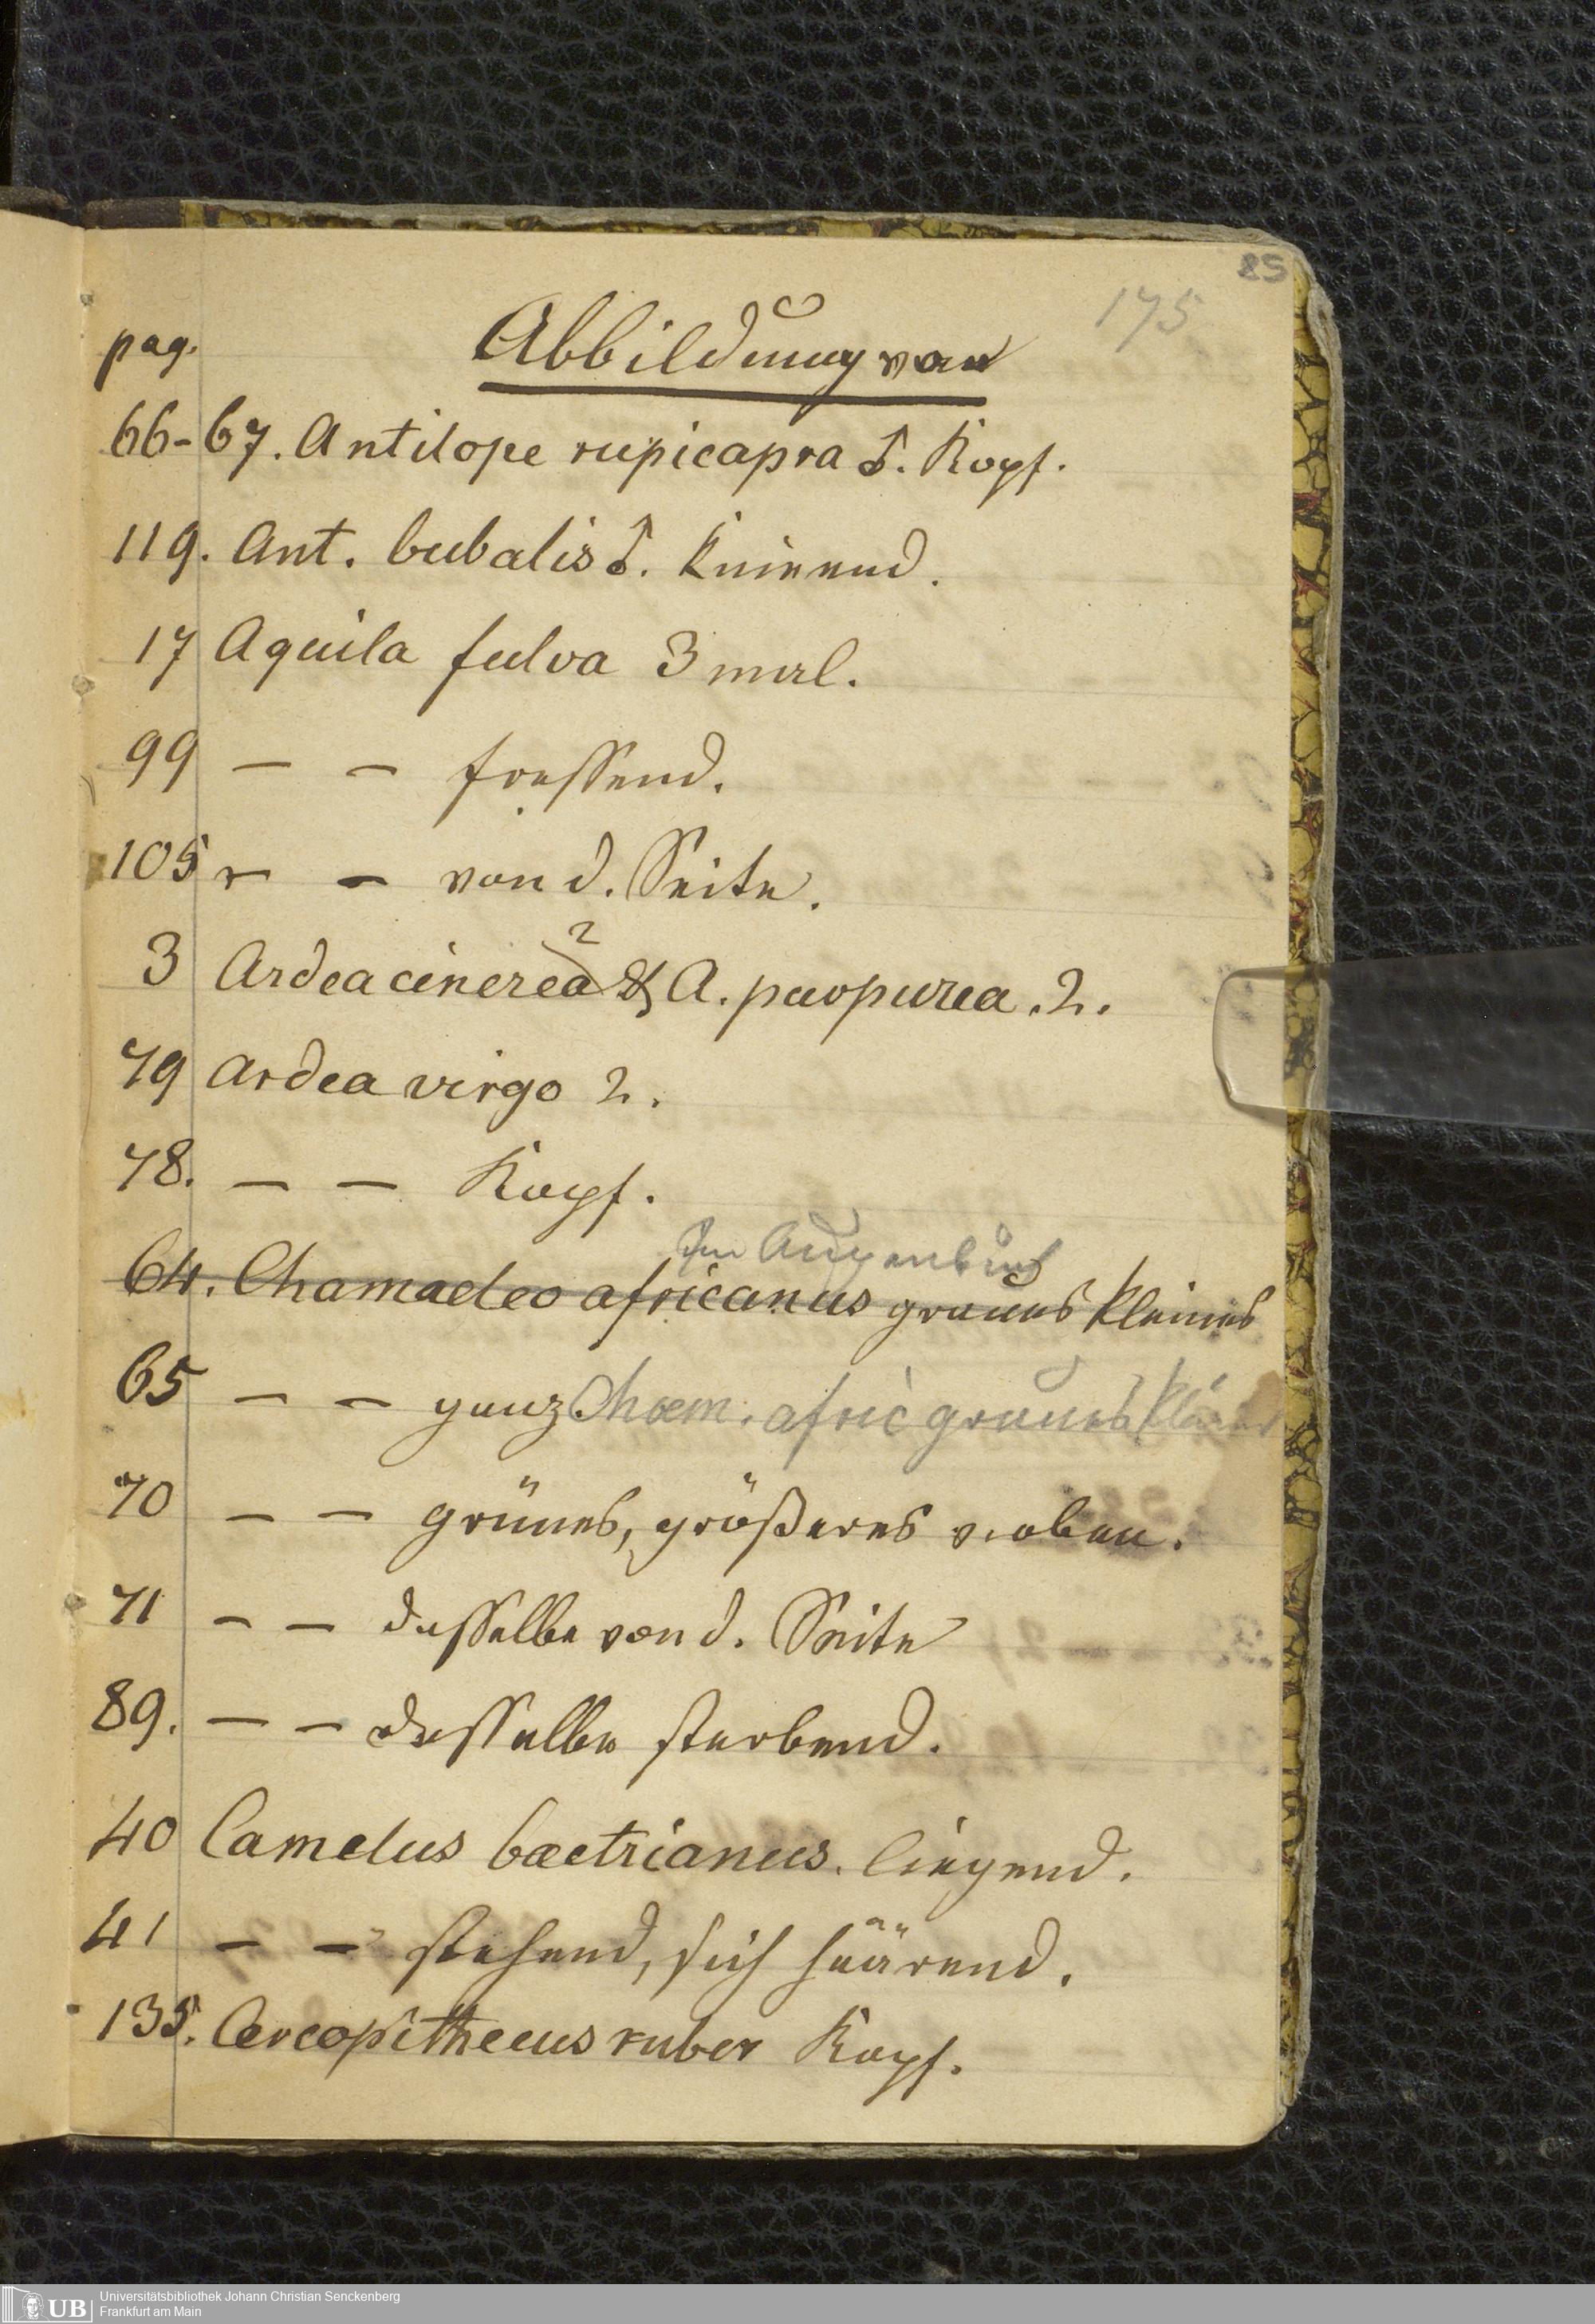 85
175
pag. Abbildung von
66-67. Antilope rupicapra ♂. Kopf.
119. Ant. bubalis ♂. knieend.
17 Aquila fulva 3 mal.
99 — — fressend.
105 — — von d. Seite.
2
3 Ardea cinerea & A. purpurea. 2.
79 Ardea virgo 2.
78. — — Kopf.
Im Augenbuch
64. Chamaeleo africanus graues kleines
65 — — ganz Chaem. afric graues kleines
70 — — grünes, größeres v. oben.
71 — — dasselbe von d. Seite
89. — — dasselbe sterbend.
40 Camelus bactrianus. liegend.
41 — — stehend, sich häärend.
135. Cercopithecus ruber Kopf.
UB Universitätsbibliothek Johann Christian Senckenberg
Frankfurt am Main